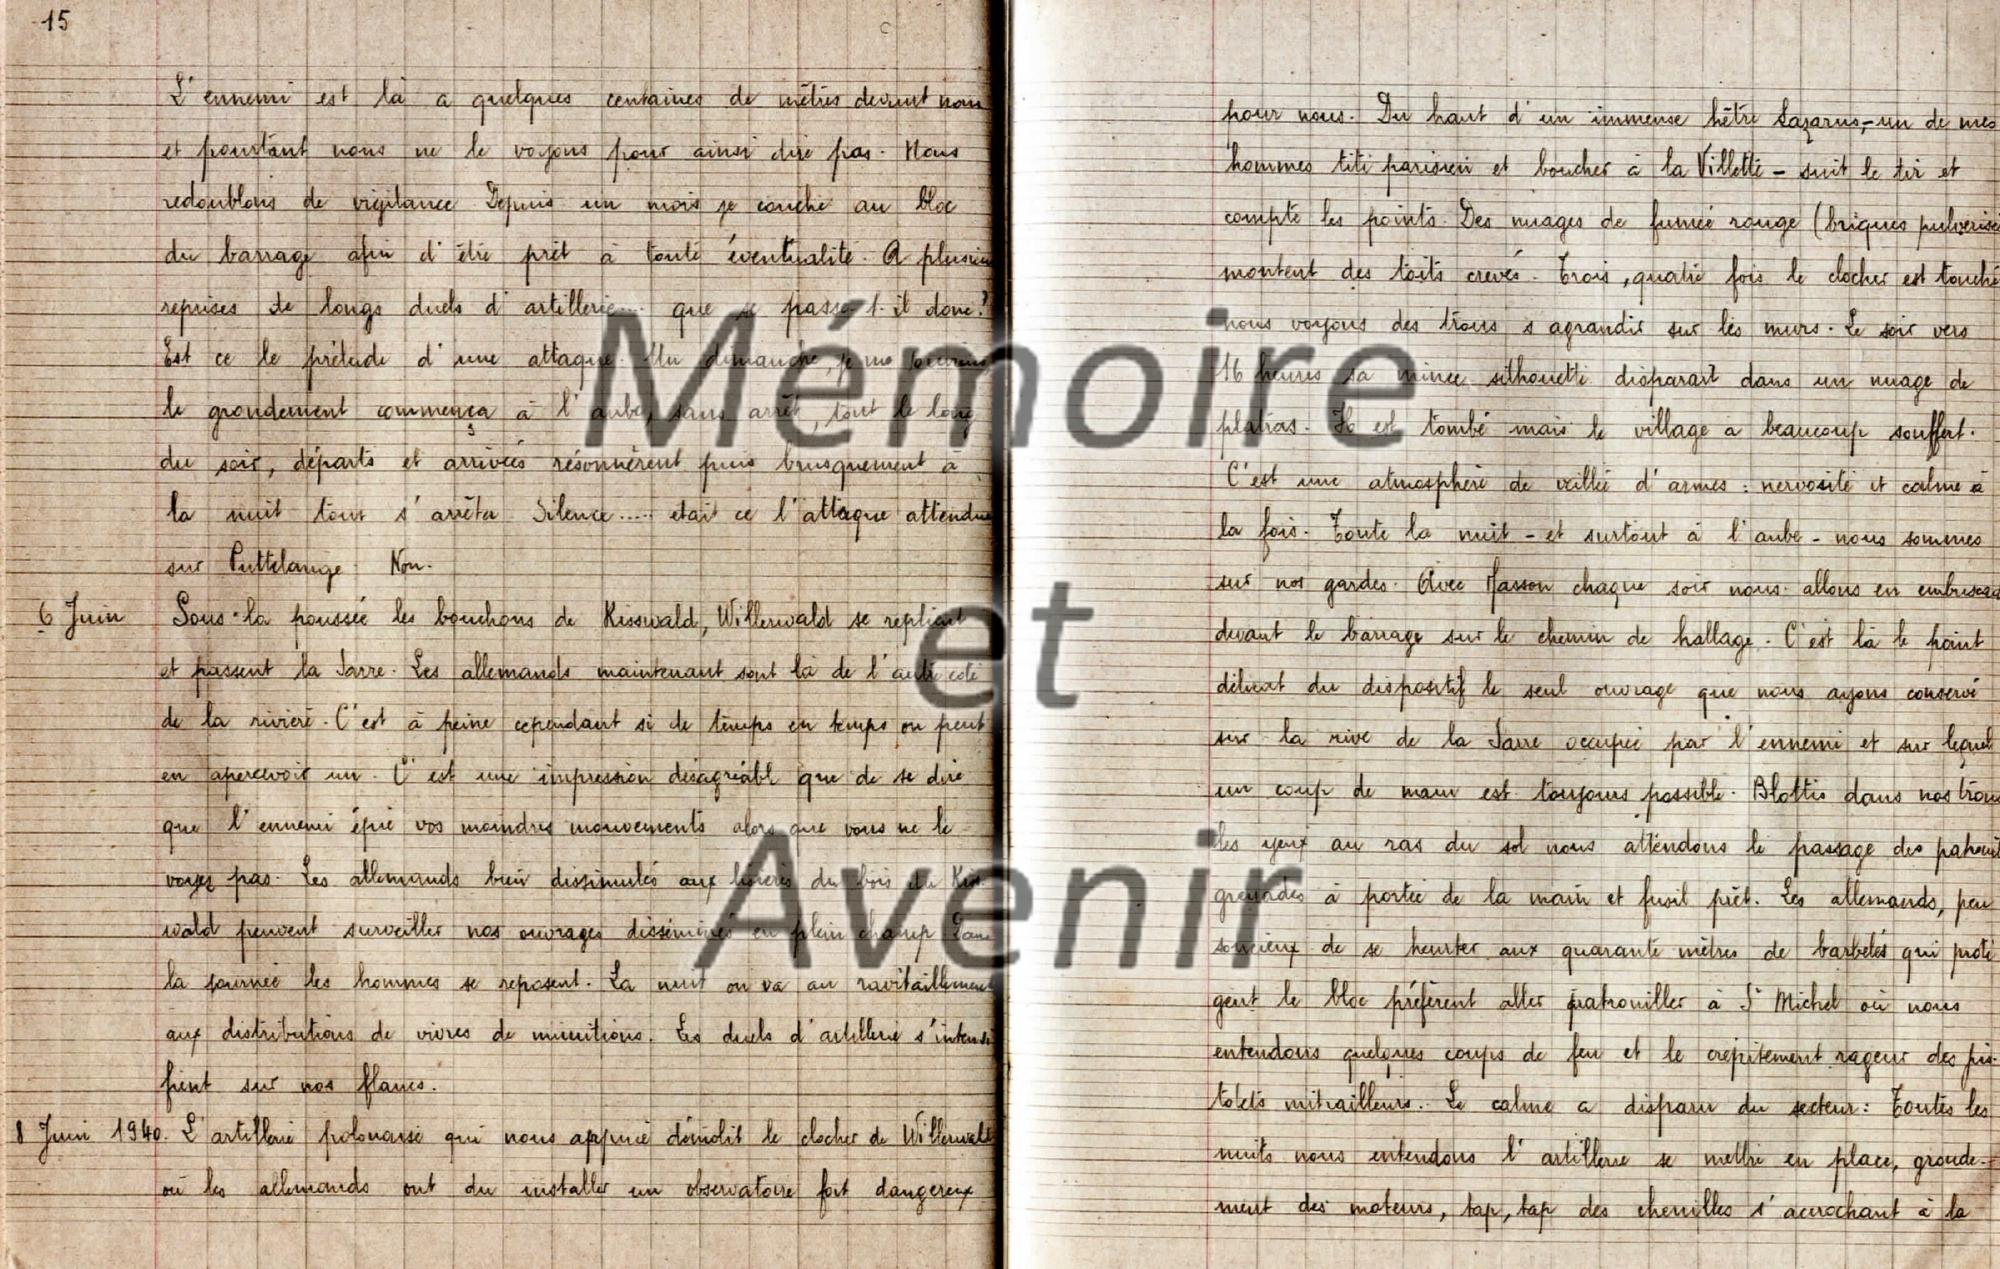 15
L'ennemi est là a quelques centaines de mètres devant nous
et pourtant nous ne le voyons pour ainsi dire pas. Nous
redoublons de vigilance Depuis un mois je couche au bloc
du barrage afin d'être prêt à toute éventualité. A plusieurs
reprises de longs duels d'artillerie.... que se passe-t-il donc?
Est ce le prélude d'une attaque. Un dimanche, je me souviens
le grondement commença à l'aube, sans arrêt, tout le long
du soir, départs et arrivées résonnèrent puis brusquement à
la nuit tout s'arrêta Silence..... était ce l'attaque attendue
sur Puttelange Non.
6 Juin Sous la poussée les bouchons de Kisswald, Willerwald se replient
et passent la Sarre. Les allemands maintenant sont là de l'autre coté
de la rivière. C'est à peine cependant si de temps en temps on peut
en apercevoir un. C'est une impression désagréable que de se dire
que l'ennemi épie vos moindres mouvements alors que vous ne le
voyez pas. Les allemands bien dissimulés aux lisières du bois du Kis
wald peuvent surveiller nos ouvrages disséminés en plein champ. Dans
la journée les hommes se reposent. La nuit on va au ravitaillement
aux distributions de vivres de munitions. Les duels d'artillerie s'intensi
fient sur nos flancs.
8 Juin 1940. L'artillerie polonaise qui nous appuie démolit le clocher de Willerwald
où les allemands ont du installer un observatoire fort dangereux
pour nous. Du haut d'un immense hêtre Lazarus,-un de mes
hommes titi parisien et boucher à la Villette - suit le tir et
compte les points. Des nuages de fumée rouge (briques pulverisées
montent des toits crevés. Trois, quatre fois le clocher est touché
nous voyons des trous s'agrandir sur les murs. Le soir vers
16 heures sa mince silhouette disparait dans un nuage de
platras. Il est tombé mais le village a beaucoup souffert.
C'est une atmosphère de veillée d'armes : nervosité et calme à
la fois. Toute la nuit - et surtout à l'aube - nous sommes
sur nos gardes. Avec Masson chaque soir nous allons en embuscade
devant le barrage sur le chemin de hallage. C'est là le point
délicat du dispositif le seul ouvrage que nous ayons conservé
sur la rive de la Sarre occupée par l'ennemi et sur lequel
un coup de main est toujours possible. Blottis dans nos trous
les yeux au ras du sol nous attendons le passage des patrouil
grenades à portée de la main et fusil prêt. Les allemands, peu
soucieux de se heurter aux quarante mètres de barbelés qui proté
gent le bloc préfèrent aller patrouiller à St Michel où nous
entendons quelques coups de feu et le crépitement rageur des pis-
tolets mitrailleurs. Le calme a disparu du secteur : Toutes les
nuits nous entendons l'artillerie se mettre en place, gronde-
ment des moteurs, tap, tap des chenilles s'accrochant à la
Mémoire
et
Avenir